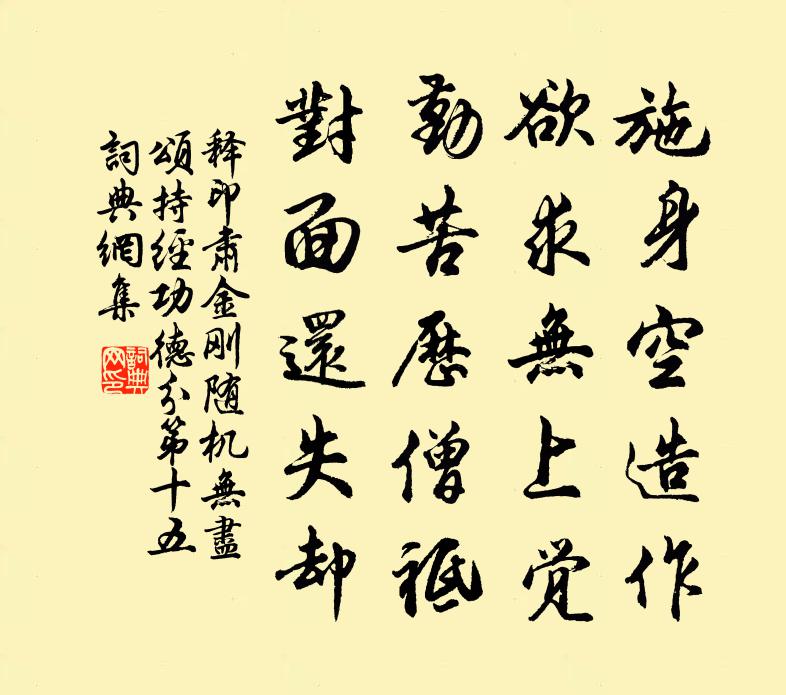 施身空造作
欲求無上覺
勤苦歷僧祇
對面還失却
釋印肅金刚随机無盡
頌持經功德分第十五
詞典網集
詞典网印